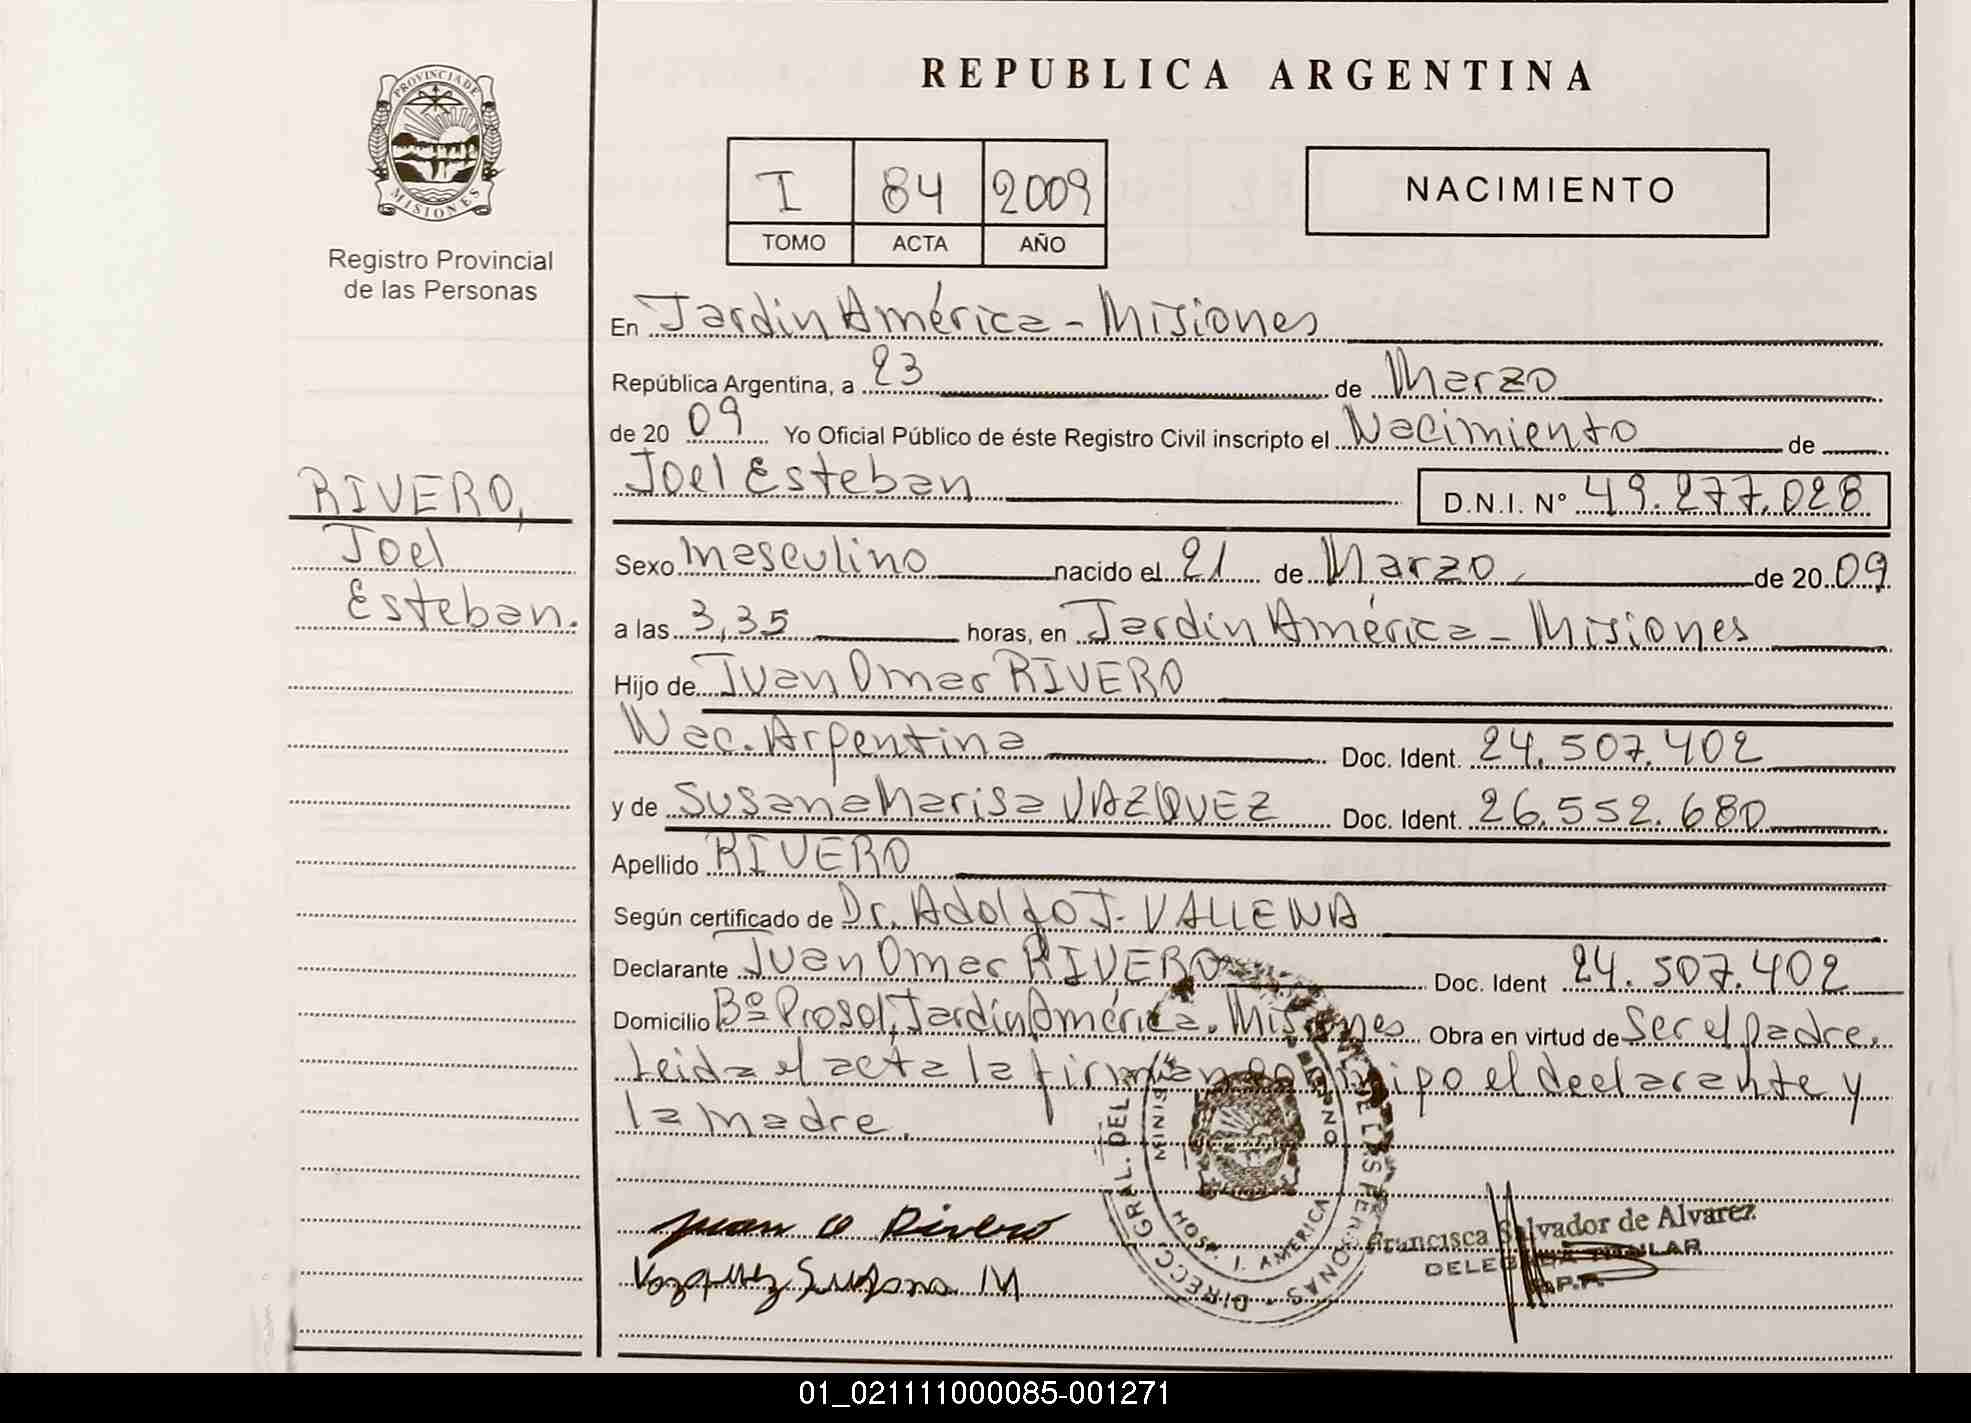 REPUBLICA ARGENTINA
PROVINCIA DE
MISIONES
Registro Provincial
de las Personas
I 84 2009
TOMO ACTA AÑO
NACIMIENTO
En Jardin América - Misiones
República Argentina, a 23 de Marzo
de 20 09 Yo Oficial Público de éste Registro Civil inscripto el Nacimiento de
RIVERO,
Joel
Esteban.
Joel Esteban D.N.I. Nº 49.277.028
Sexo masculino nacido el 21 de Marzo de 20 09
a las 3,35 horas, en Jardin América - Misiones
Hijo de Juan Omar RIVERO
Nac. Argentina Doc. Ident. 24.507.402
y de Susana Marisa VAZQUEZ Doc. Ident. 26.552.680
Apellido RIVERO
Según certificado de Dr. Adolfo J. VALLENA
Declarante Juan Omar RIVERO Doc. Ident 24.507.402
Domicilio Bº Prosol, Jardín América. Misiones Obra en virtud de Ser el padre.
Leida el acta la firman el declarante y
la madre.
Juan O Rivero
Vazquez Susana M
DIRECC. GRAL. DEL PERSONAS
HOSP. J. AMERICA
Francisca Salvador de Alvarez
DELEGADA TITULAR
R.P.P.
01_021111000085-001271